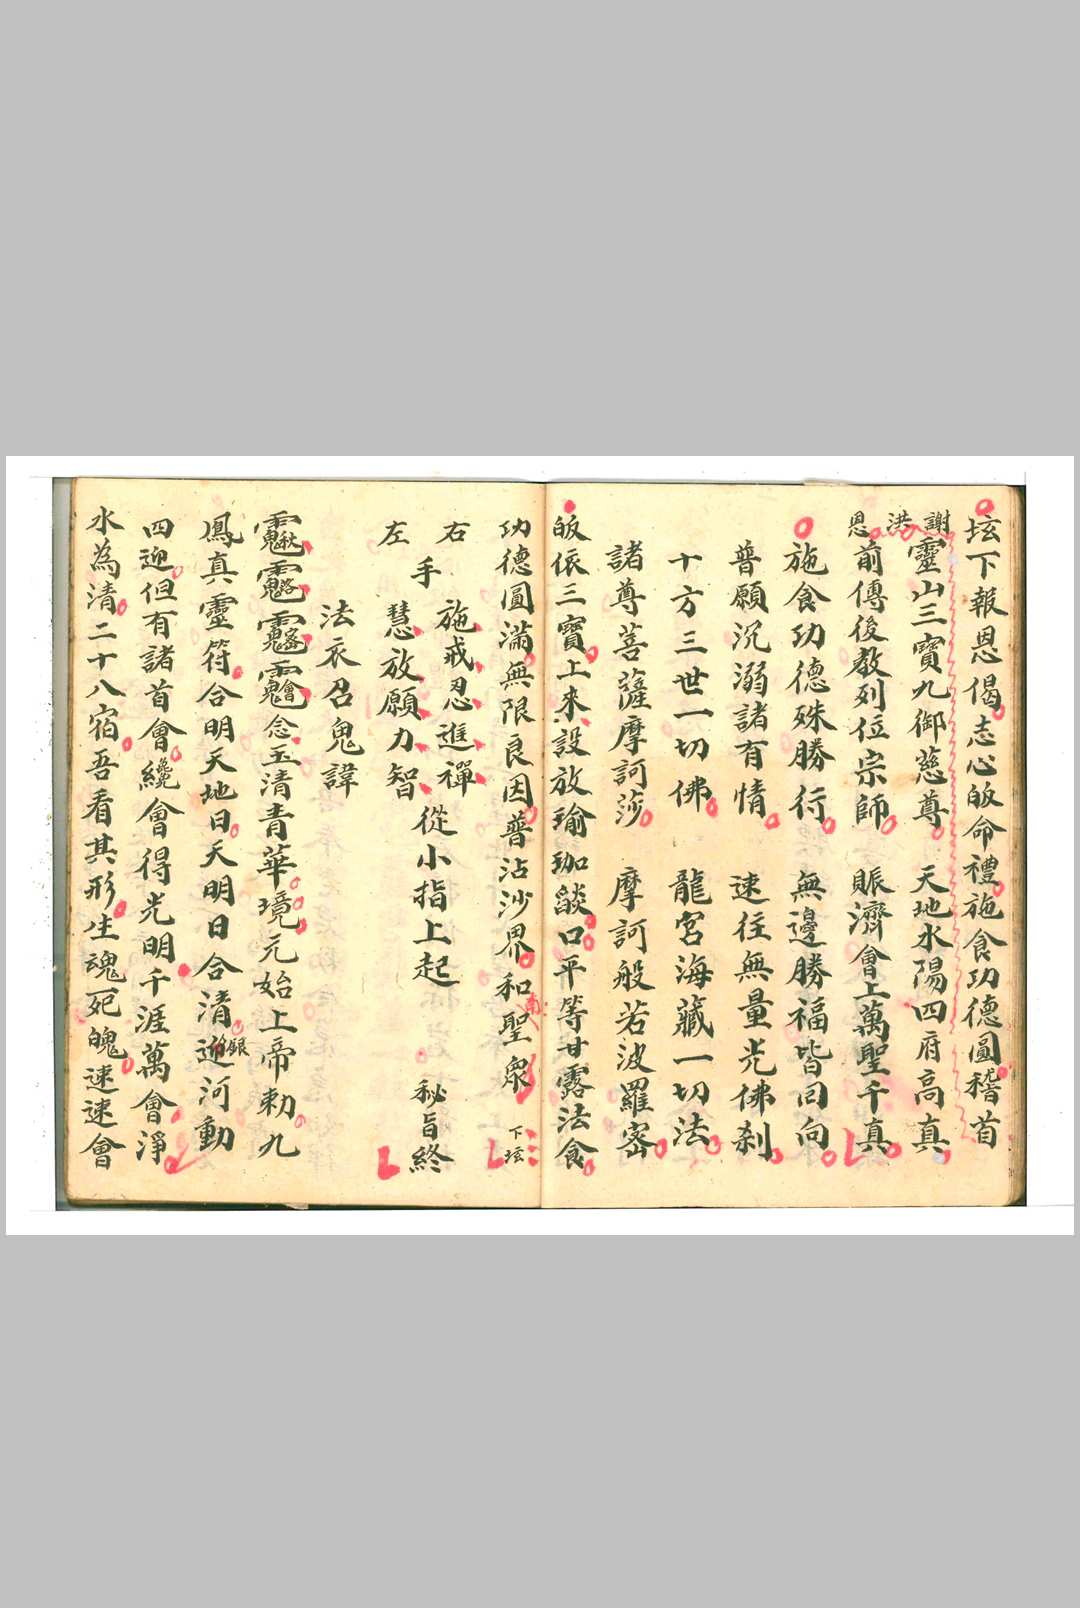 坛下報恩偈志心皈命禮施食功德圓稽首
謝
靈山三寶九御慈尊　天地水陽四府高真
洪
恩
前傳後教列位宗師　賑濟會上萬聖千真
施食功德殊勝行　無邊勝福皆回向
普願沉溺諸有情　速往無量光佛剎
十方三世一切佛　龍宮海藏一切法
諸尊菩薩摩訶莎　摩訶般若波羅密
皈依三寶上來設放瑜珈燄口平等甘露法食
功德圓滿無限良因普沾沙界和南聖眾　下坛
右　施戒忍進禪
手　從小指上起　秘旨終
左　慧放願力智
法衣召鬼諱
念玉清青華境元始上帝勅九
鳳真靈符合明天地日天明日合清迎銀河動
四迎但有諸首會纔會得光明千涯萬會淨
水為清二十八宿吾看其形生魂死魄速速會